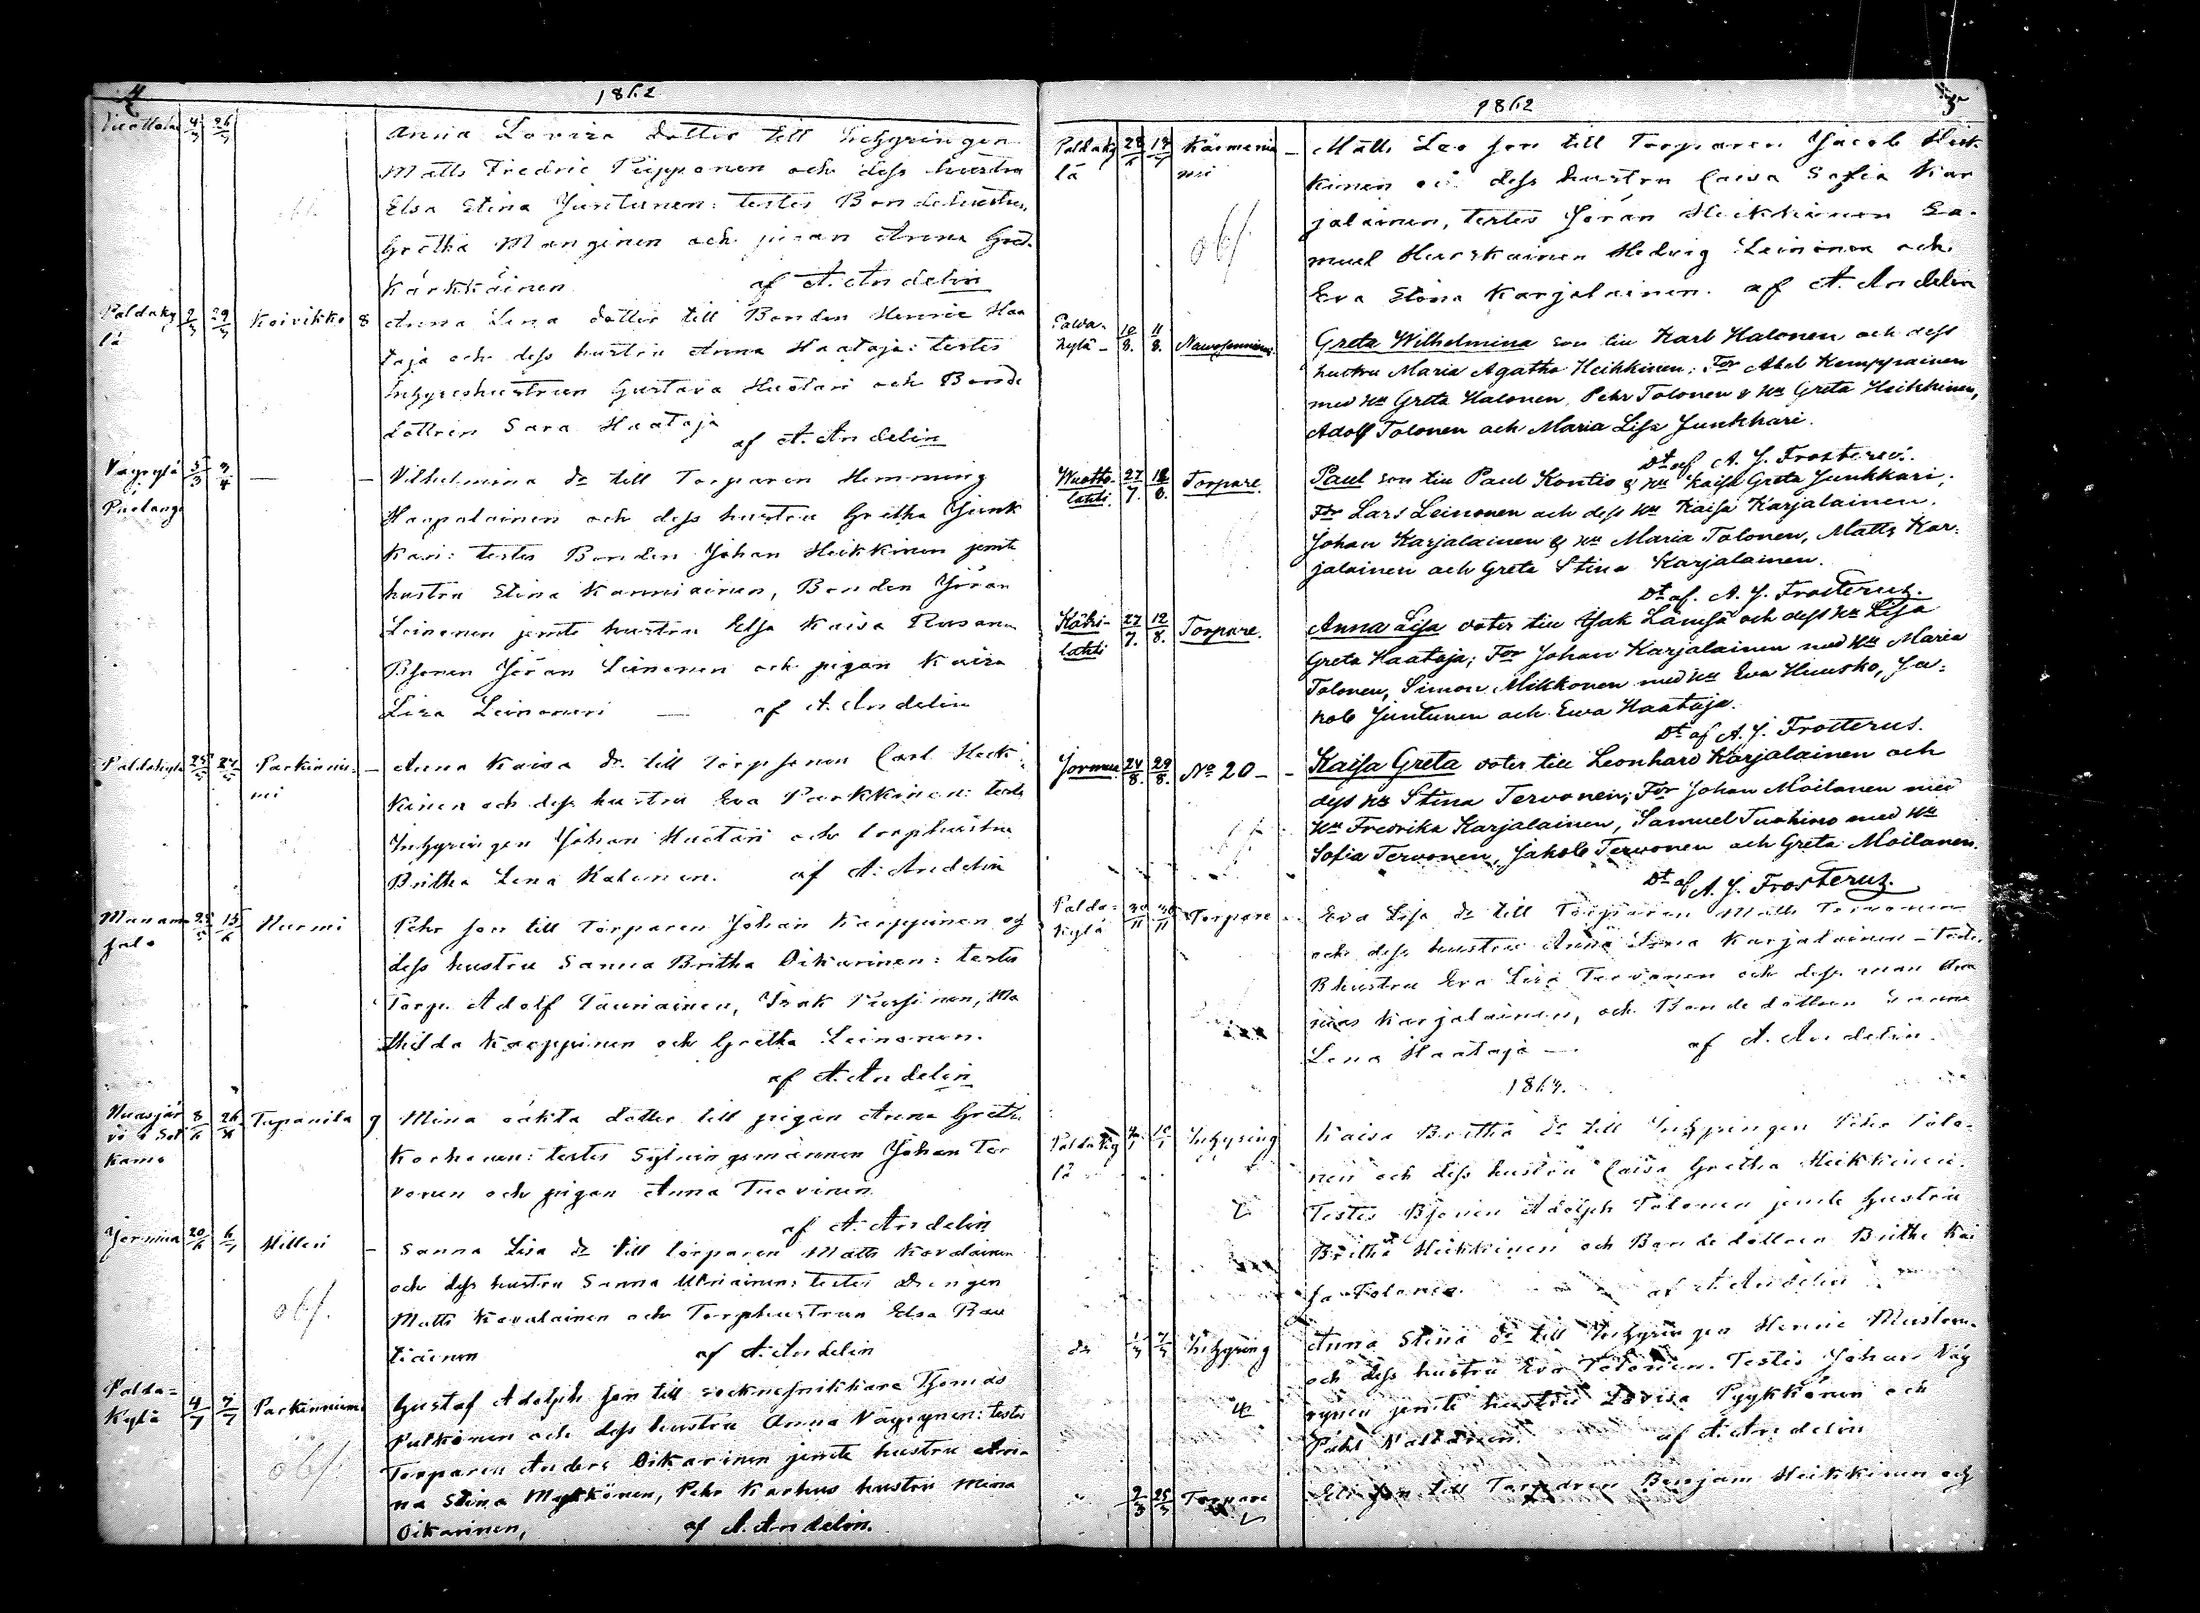 4
1862
Vuottola 4/3 26/3
Anna Lovisa dotter till Inhysingen
Matts Fredric Piipponen och dess hustru
Elsa Stina Juntunen: testes Bondehustrun
Gretha Manginen och pigan Anna Gret.
Kärkkäinen af A. Andelin
Paldaky
lä 2/3 29/3 Koivikko 8 Anna Lena dotter till Bonden Henric Haa
taja och dess hustru Anna Haataja: testes
Inhyseshustrun Gustava Huotari och Bonde
dottren Sara Haataja
af A. Andelin
Väyrylä 5/3 3/4 — — Vilhelmina dr till Torparen Hemming
Puolango
Haapalainen och dess hustru Gretha Junk
kari: testes Bonden Johan Heikkinen jemte
hustru Stina Kanniainen, Bonden Jöran
Leinonen jemte hustru Elsa Kaisa Rusanen
Bsonen Jöran Leinonen och pigan Kaisa
Lisa Leinonen — af A. Andelin
Paldakylä 25/5 27/5 Parkinnie- — Anna Kaisa dr. till Torpsonen Carl Heik-
mi
kinen och dess hustru Eva Parkkinen: testes
Inhysingen Johan Huotari och torphustru
Britha Lena Kahunen. af A. Andelin
Manam
salo 25/5 15/6 Nurmi Pehr son till Torparen Johan Karppinen og
dess hustru Sanna Britha Oikarinen: testes
Torp. Adolf Tauriainen, Isak Pussinen, Ma
thilda Karppinen och Gretha Leinonen.
af A. Andelin
Nuasjär
vi i Sot
kamo 8/6 26/6 Tapanila 9 Mina oäkta dotter till pigan Anna Greth.
Korhonen: testes Sytningsmannen Johan Ter
vonen och pigan Anna Tuovinen
af A. Andelin
Jormua 20/6 6/7 Hilleri — Sanna Lisa dr till torparen Matts Kovalainen
och dess hustru Sanna Mikiainen: testes Drengen
obs. Matts Kovalainen och Torphustrun Elsa Rau
tiainen af A. Andelin
Palda=
kylä 4/7 7/7 Parkinniemi Gustaf Adolph son till socknesnikkare Thomas
Pulkonen och dess hustru Anna Väyrynen: testes
obs. Torparen Anders Oikarinen jemte hustru An-
na Stina Mykkönen, Pehr Karhus hustru Mina
Oikarinen, af A. Andelin.
1862
5
Paldaky
lä Käsmenie — Matts Leo son till Torparen Jacob Heik
mi
kinen och dess hustru Caisa Sofia Kar
jalainen, testes Jöran Heikkinen Sa-
obs. muel Hurskainen Hedvig Leinonen och
Eva Stina Karjalainen. af A. Andelin
kylä — 10/8. 11/8. Greta Wilhelmina till Karl Halonen och dess
hustru Maria Agatha Heikkinen; Fdr Abel Kemppainen
med Hu Greta Halonen, Pehr Tolonen & Hu Greta Heikkinen,
Adolf Tolonen och Maria Lisa Junkkari.
Dt af A. J. Frosterus.
Wuotto-
lahti 27/7. Torpare. Paul son till Paul Kontio & Hu Kaisa Greta Junkkari,
Fdr Lars Leinonen och dess Hu Kaisa Karjalainen.
Johan Karjalainen & Hu Maria Tolonen, Matts Kar-
jalainen och Greta Stina Karjalainen.
Dt af. A. J. Frosterus.
lahti 27/7. 12/8. Torpare. Anna Lisa doter till Isak Lämsä och dess Hu Lisa
Greta Haataja; Fdr Johan Karjalainen med Hu Maria
Tolonen, Simon Mikkonen med Hu Eva Huusko, Ja-
kob Juntunen och Ewa Haataja.
Dt af A. J. Frosterus.
Jormua 24/8. 29/8. No 20 — — Kaisa Greta doter till Leonhard Karjalainen och
dess Hu Stina Tervonen; Fdr Johan Moilanen med
Hu Fredrika Karjalainen, Samuel Tuohino med Hu
Sofia Tervonen, Jakob Tervonen och Greta Moilanen.
Dt af A. J. Frosterus.
Palda-
kylä Torpare Eva Lisa dr till Torparen Matts Tervonen
och dess hustru Anna Karjalainen — testes
Bhustru Eva Lisa Tervonen och dess man
Karjalainen, och Bonde dottren Sanna
Lena Haataja —. af A. Andelin.
1864.
Paldaky
lä Inhysing Kaisa Britha dr till Inhysingen Pehr Tolo-
nen och dess hustru Caisa Gretha Heikkinen.
Testes Bsonen Adolph Tolonen jemte hustru
Britha Heikkinen och Bondedottren Britha Kai
sa Tolonen. af A. Andelin
do Inhysing Anna Stina dr till Inhysingen Henric Muston.
och dess hustru Eva Tolonen. Testes Johan Väy
rynen jemte hustru Lovisa Pyykkönen och
af A. Andelin
" 9/3 25/3 Torpare son till Torparen Benjam Heikkinen och